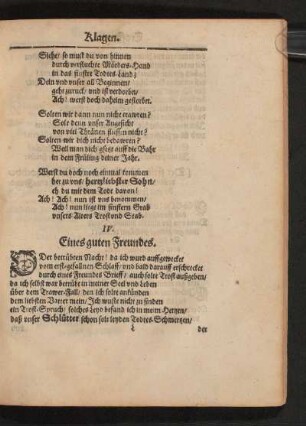 Klagen.
Siehe/ so must du von hinnen
durch verfluchte Mörders-Hand
in das finster Todtes-Land;
Dein und unser all Beginnen/
geht zurück/ und ist verdorben/
Ach! werst doch daheim gestorben.
Solten wir dann nun nicht trauren?
Solt denn unser Angesicht
von viel Thränen fliessen nicht?
Solten wir dich nicht bedauren?
Weil man dich gsetzt auff die Bahr
in dem Früling deiner Jahr.
Werst du doch noch einmal kommen
her zu uns/ hertzliebster Sohn/
eh du mit dem Tode davon!
Ach! Ach! nun ist uns benommen/
Ach! nun liegt im finstern Grab
unsers Alters Trost und Stab.
IV.
Eines guten Freundes.
O Der betrübten Nacht! da ich ward auffgewecket
vom erst-gefallnen Schlaff/ und bald darauff erschrecket
durch eines Freundes Brieff/ auch solte Trost auffgeben/
da ich selbst war betrübt in meiner Seel und Leben
über dem Trawer-Fall/ den ich solte ankünden
dem liebsten Vater mein/ Ich wuste nicht zu finden
ein Trost-Spruch/ solches Leyd befand ich in meim Hertzen/
daß unser Schlütter schon seit leyden Todtes-Schmertzen/
der